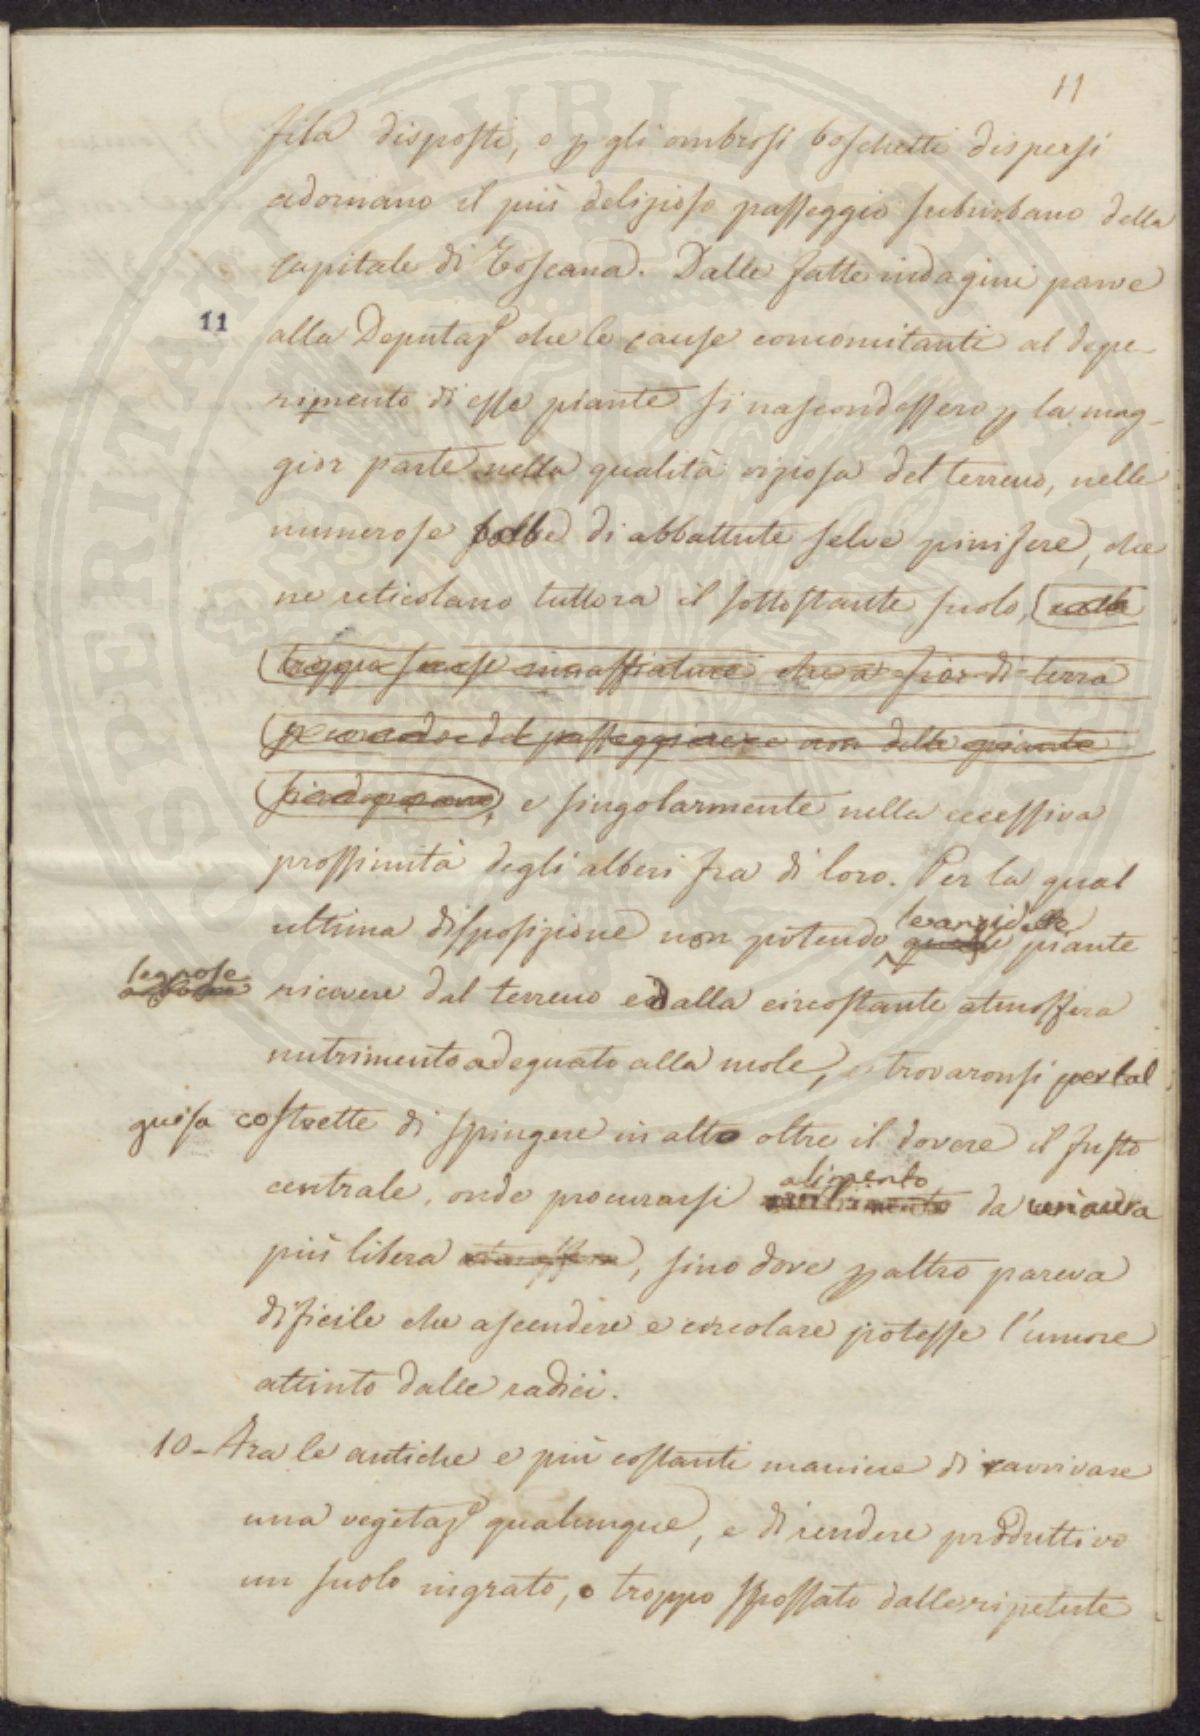 11
fila disposti, o p gli ombrosi boschetti dispersi
adornano il più delizioso passeggio suburbano della
capitale di Toscana. Dalle fatte indagini parve
11
alla Deputaze che le cause concomitanti al depe-
rimento di esse piante si nascondessero p la mag-
gior parte nella qualità viziosa del terreno, nelle
numerose di abbattute selve pinifere, che
ne reticolano tuttora il sottostante suolo, nelle
troppo scarse innaffiature che a fior di terra
del passeggiere non delle piante
si adoprano, e singolarmente nella eccessiva
prossimità degli alberi fra di loro. Per la qual
ultima disposizione non potendo piante
legnose ricevere dal terreno e dalla circostante atmosfera
nutrimento adeguato alla mole, trovaronsi per tal
guisa costrette di spingere in alto oltre il dovere il fusto
alimento
centrale, onde procurarsi da un'aura
più libera atmosfera, fino dove p altro pareva
dificile che ascendere e circolare potesse l'umore
attinto dalle radici.
10- Fra le antiche e più costanti maniere di ravvivare
una vegetaze qualunque, e di rendere produttivo
un suolo ingrato, o troppo spossato dalle ripetute